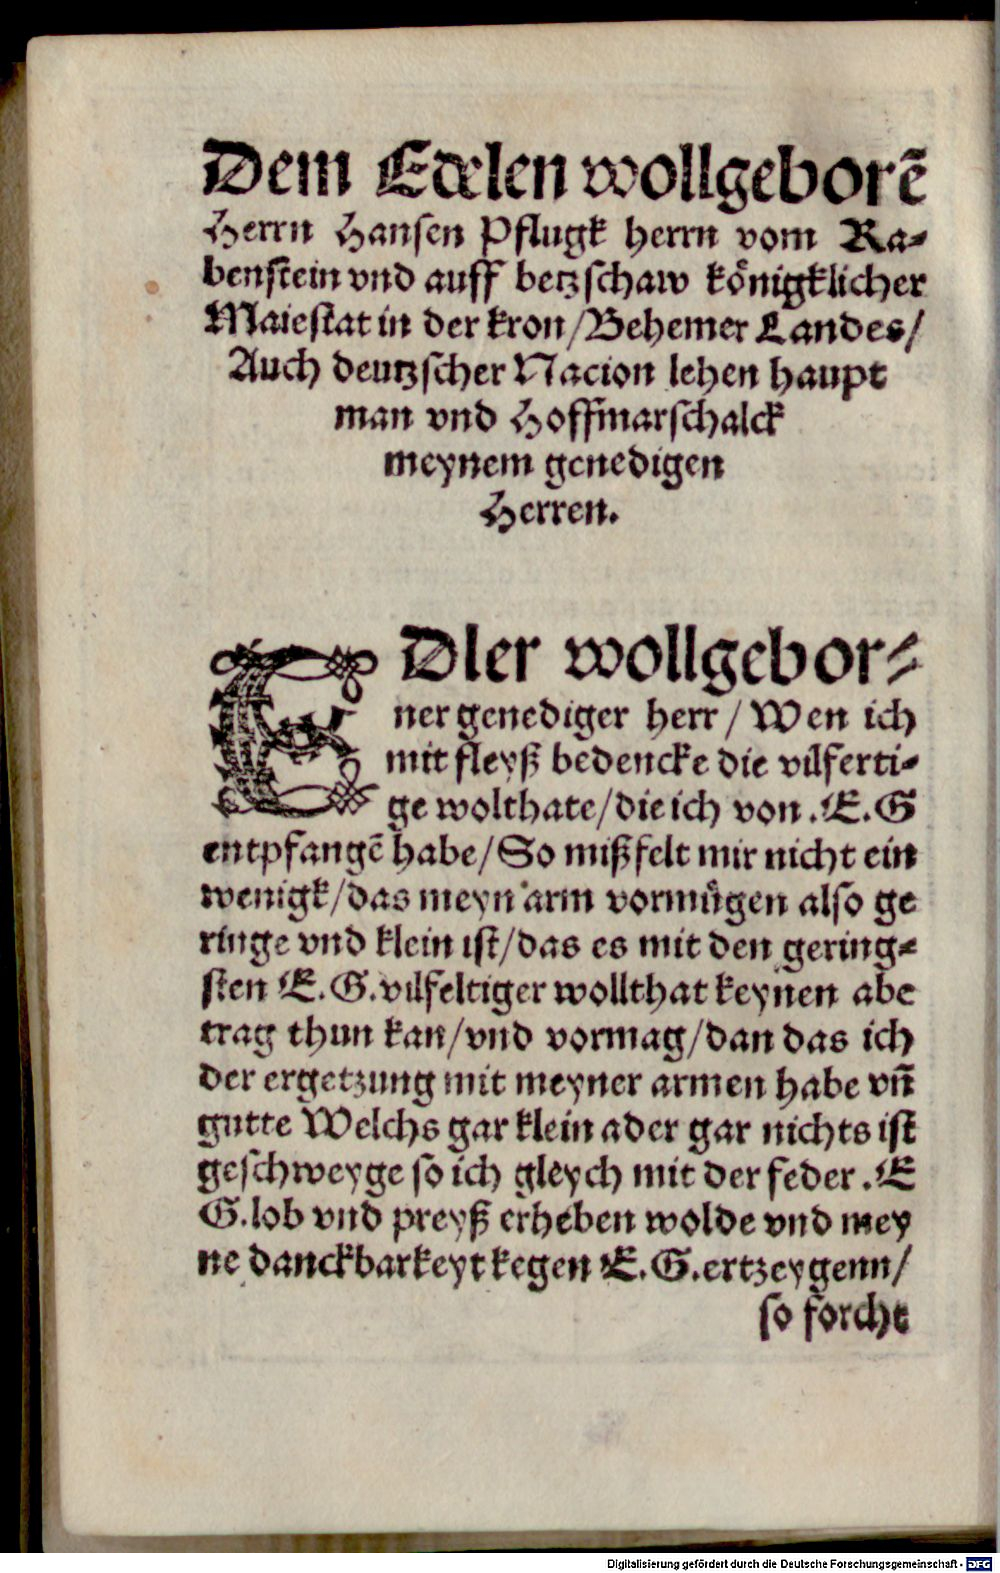 Dem Edelen wollgeborē
Herrn Hansen Pflugk herrn vom Ra-
benstein vnd auff betzschaw königklicher
Maiestat in der kron/Behemer Landes/
Auch deutzscher Nacion lehen haupt
man vnd Hoffmarschalck
meynem genedigen
Herren.
EDler wollgebor-
ner genediger herr/Wen ich
mit fleyß bedencke die vilferti-
ge wolthate/die ich von .E.G
entpfangē habe/So mißfelt mir nicht ein
wenigk/das meyn arm vormügen also ge
ringe vnd klein ist/das es mit den gering-
sten E.G.vilfeltiger wollthat keynen abe
trag thun kan/vnd vormag/dan das ich
der ergetzung mit meyner armen habe vn̄
gutte Welchs gar klein ader gar nichts ist
geschweyge so ich gleych mit der feder .E
G.lob vnd preyß erheben wolde vnd mey
ne danckbarkeyt kegen E.G.ertzeygenn/
so forcht
Digitalisierung gefördert durch die Deutsche Forschungsgemeinschaft - DFG